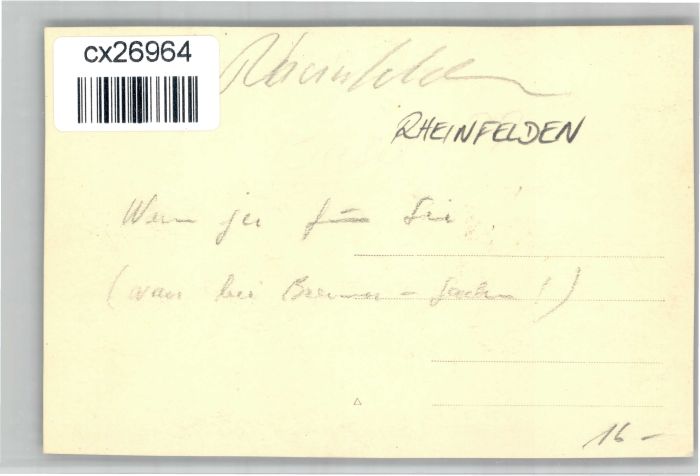 cx26964
Rheinfelden
RHEINFELDEN
Wenn für Sie!
(war bei Bremen - !)
16 -